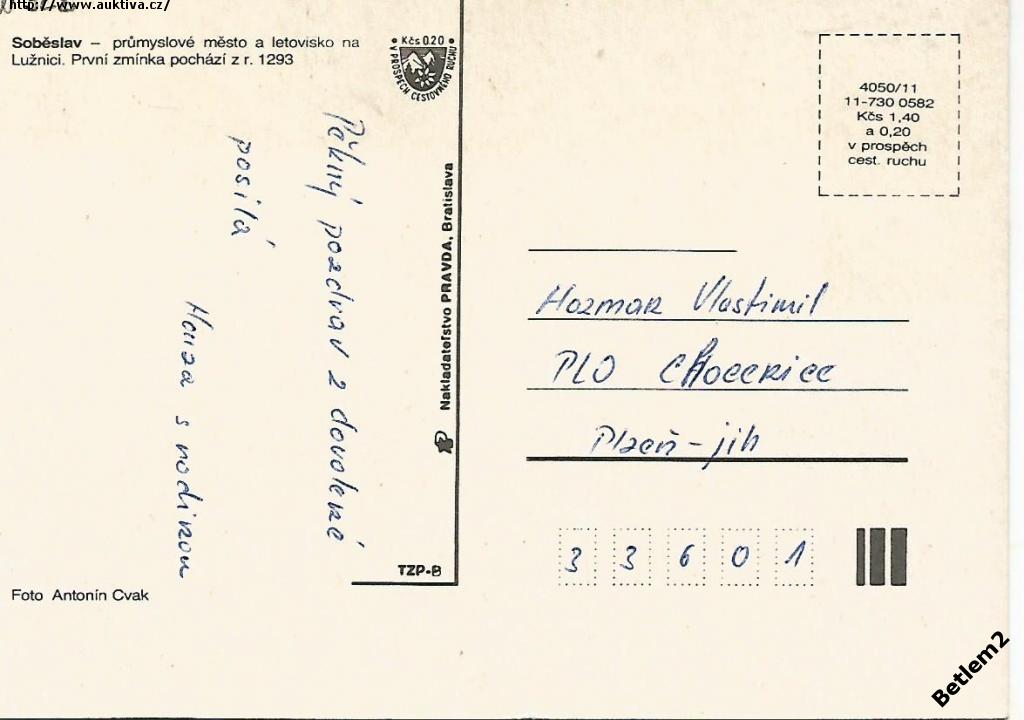 http://www.auktiva.cz/
Soběslav – průmyslové město a letovisko na
Lužnici. První zmínka pochází z r. 1293
Kčs 0.20
V PROSPĚCH CESTOVNÉHO RUCHU
Pěkný pozdrav z dovolené
posílá
Honza s rodinou
Nakladateľstvo PRAVDA, Bratislava
TZP-B
Foto Antonín Cvak
4050/11
11-730 0582
Kčs 1,40
a 0,20
v prospěch
cest. ruchu
Hozmar Vlastimil
PLO
Plzeň-jih
33601
Betlem2